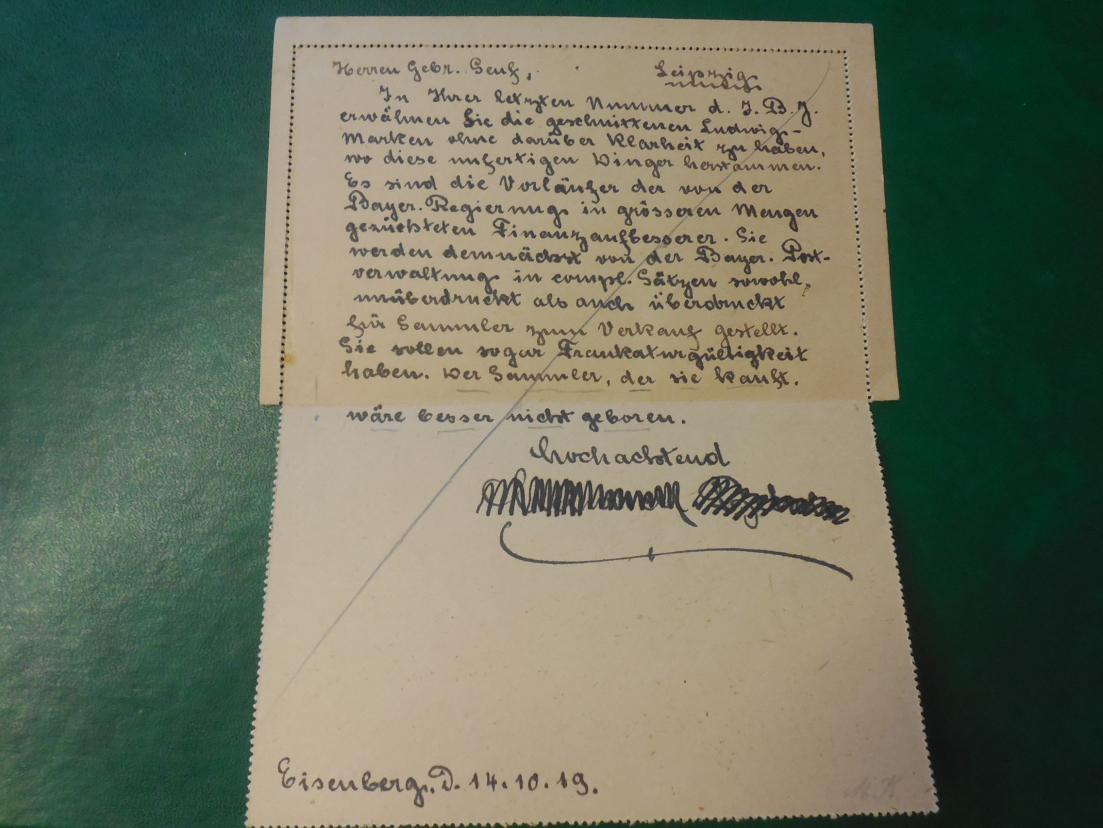 Herren Gebr. Senf, Leipzig
In Ihrer letzten Nummer d. I. B. J.
erwähnen Sie die geschnittenen Ludwig-
Marken ohne darüber Klarheit zu haben,
wo diese unfertigen Dinger herstammen.
Es sind die Vorläufer der von der
Bayer. Regierung in grösseren Mengen
gezüchteten Finanzaufbesserer. Sie
werden demnächst von der Bayer. Post-
verwaltung in compl. Sätzen sowohl,
unüberdruckt als auch überdruckt
für Sammler zum Verkauf gestellt.
Sie sollen sogar Frankaturgültigkeit
haben. Der Sammler, der sie kauft.
wäre besser nicht geboren.
Hochachtend
Eisenberg, D. 14.10.19.